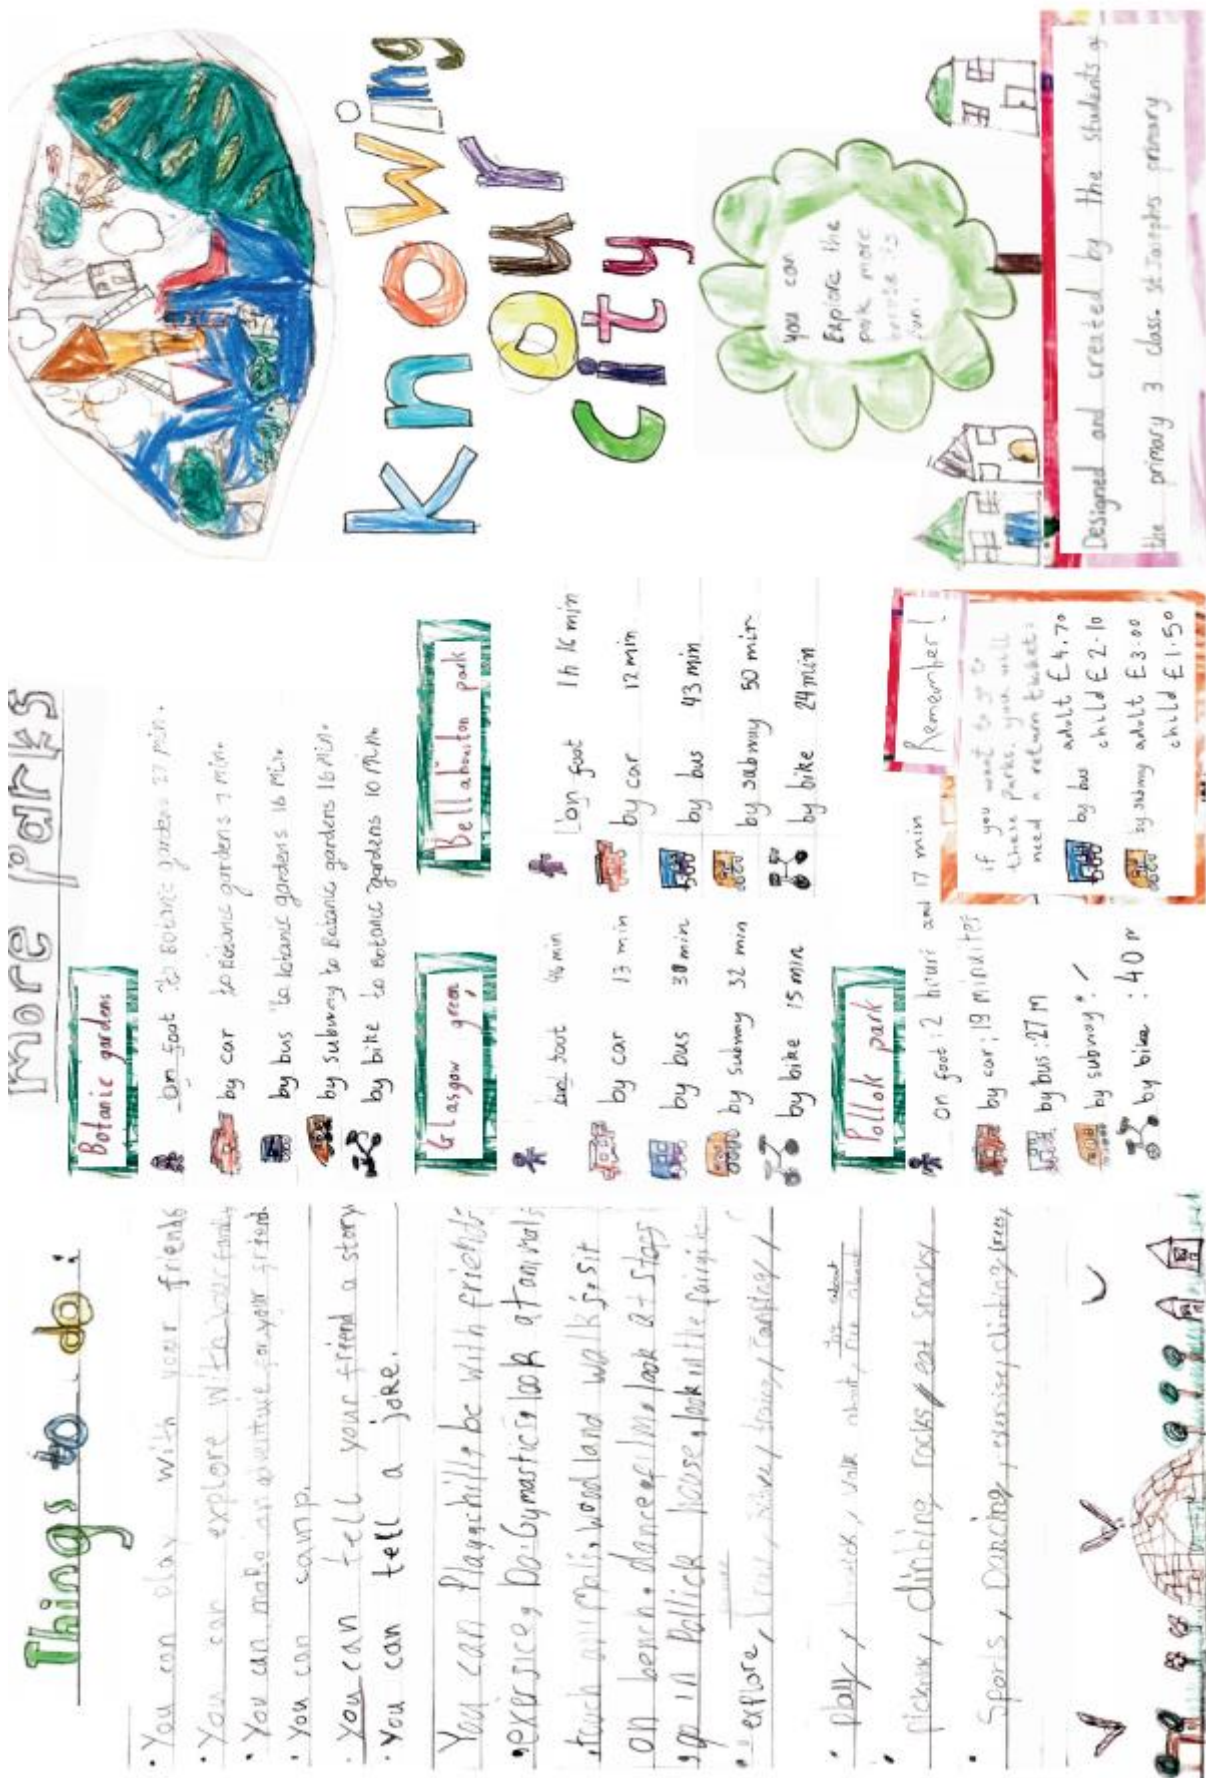 Things to do :
· You can play with your friends
· You can explore with your family
· You can make an adventure for your friend.
· You can camp.
· You can tell your friend a story
· You can tell a joke.
You can Play, chill, be with friends
exersice, Do Gymastics, look at animals
, touch animals, woodland walks, sit
on bench, dance, film, look at stars
, go in Pollick house, look in the
· explore,
· play, walk about, run about
picknick, climbing rocks, eat snacks,
· Sports, Dancing, exersise, climbing trees,
more Parks
Botanic gardens
on foot to Botanic garden 27 min.
by car to Botanic gardens 7 min.
by bus to botanic gardens 16 min.
by subway to Botanic gardens 16 min.
by bike to Botanic gardens 10 min.
Glasgow green,
foot 46 min
by car 13 min
by bus 30 min
by subway 32 min
by bike 15 min
Bellahouston park
on foot 1h 16 min
by car 12 min
by bus 43 min
by subway 50 min
by bike 24 min
Pollok park
on foot : 2 hours and 17 min
by car : 19 minutes
by bus : 27 m
by subway : /
by bike : 40 m
Remember!
if you want to go to
these Parks, you will
need a return ticket:
by bus adult £4.70
child £2.10
by subway adult £3.00
child £1.50
Knowing
your
city
you can
Explore the
park more
is
fun.
Designed and created by the students of
the primary 3 class. St Josephs primary